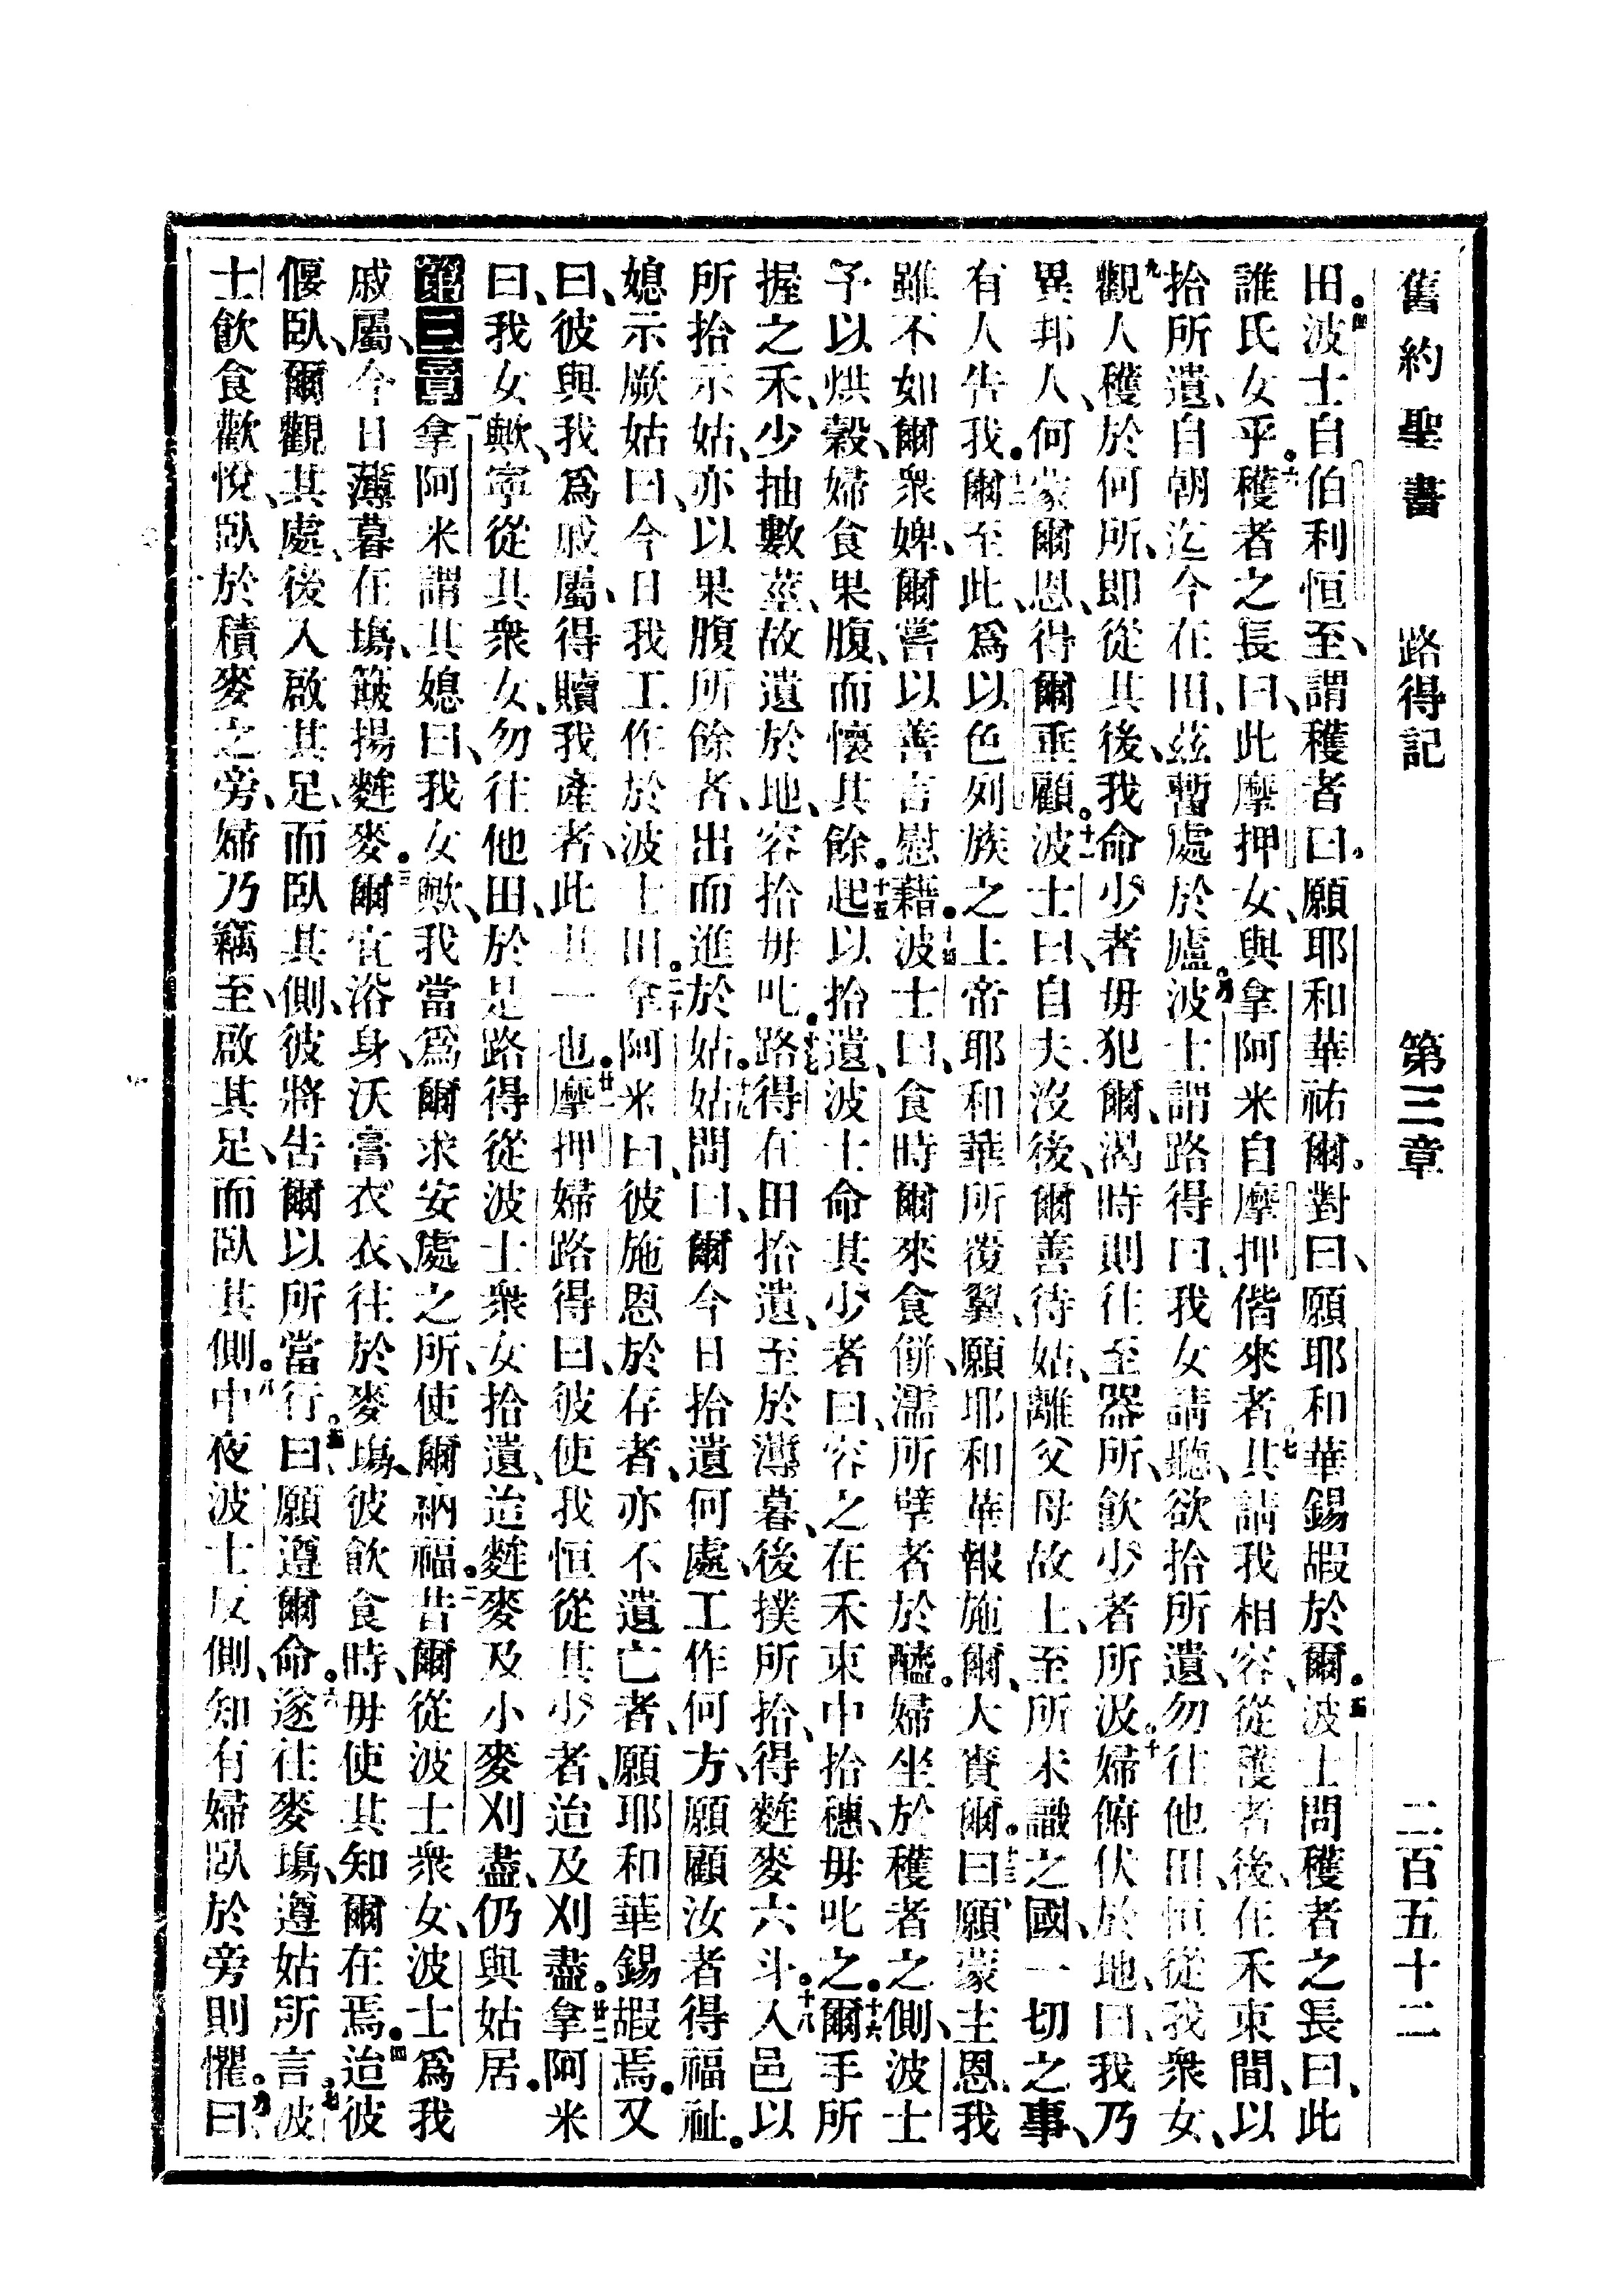 舊約聖書 路得記 第三章 二百五十二
田。四波士自伯利恒至、謂穫者曰、願耶和華祐爾。對曰、願耶和華錫嘏於爾。五波士問穫者之長曰、此
誰氏女乎。六穫者之長曰、此摩押女、與拿阿米自摩押偕來者。七其請我相容、從穫者後、在禾束間、以
拾所遺、自朝迄今在田、茲暫處於廬。八波士謂路得曰、我女請聽、欲拾所遺、勿往他田、恒從我衆女、
九觀人穫於何所、即從其後、我命少者毋犯爾、渴時則往至器所、飲少者所汲。十婦俯伏於地、曰、我乃
異邦人、何蒙爾恩、得爾垂顧。十一波士曰、自夫沒後、爾善待姑、離父母故土、至所未識之國、一切之事、
有人告我。十二爾至此、爲以色列族之上帝耶和華所覆翼、願耶和華報施爾、大賚爾。十三曰、願蒙主恩、我
雖不如爾衆婢、爾嘗以善言慰藉。十四波士曰、食時爾來食餅、濡所擘者於醯。婦坐於穫者之側、波士
予以烘穀、婦食果腹、而懷其餘。十五起以拾遺、波士命其少者曰、容之在禾束中拾穗、毋叱之。十六爾手所
握之禾、少抽數莖、故遺於地、容拾毋叱。十七路得在田拾遺、至於薄暮、後撲所拾、得麰麥六斗。十八入邑以
所拾示姑、亦以果腹所餘者、出而進於姑。十九姑問曰、爾今日拾遺何處、工作何方、願顧汝者得福祉。
媳示厥姑曰、今日我工作於波士田。二十拿阿米曰、彼施恩於存者、亦不遺亡者、願耶和華錫嘏焉。又
曰、彼與我爲戚屬、得贖我產者、此其一也。廿一摩押婦路得曰、彼使我恒從其少者、迨及刈盡。廿二拿阿米
曰、我女歟、寧從其衆女、勿往他田、於是路得從波士衆女拾遺、迨麰麥及小麥刈盡、仍與姑居。
第三章 一拿阿米謂其媳曰、我女歟、我當爲爾求安處之所、使爾納福。二昔爾從波士衆女、波士爲我
戚屬、今日薄暮在塲、簸揚麰麥。三爾宜浴身、沃膏衣衣、往於麥塲、彼飲食時、毋使其知爾在焉。四迨彼
偃臥、爾觀其處、後入啟其足、而臥其側、彼將告爾以所當行。五曰、願遵爾命。六遂往麥塲、遵姑所言。七波
士飲食歡悅、臥於積麥之旁、婦乃竊至、啟其足、而臥其側。八中夜波士反側、知有婦臥於旁則懼。九曰、